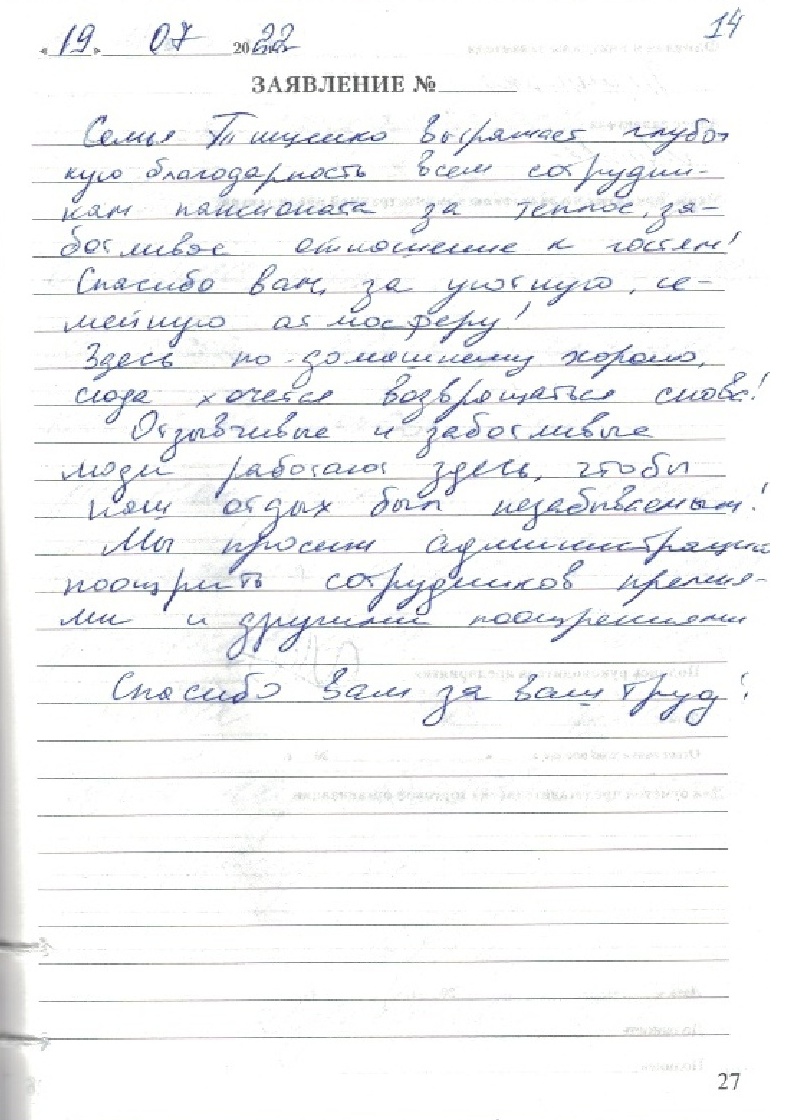 14
«19» 07 2022
ЗАЯВЛЕНИЕ №
Семья Тищенко выражает глубо
кую благодарность всем сотрудни-
кам пансионата за теплое, за-
ботливое отношение к гостям!
Спасибо вам, за уютную, се-
мейную атмосферу!
Здесь по-домашнему хорошо,
сюда хочется возвращаться снова!
Отзывчивые и заботливые
люди работают здесь, чтобы
наш отдых был незабываемым!
Мы просим администрацию
поощрить сотрудников преми-
ми и другими поощрениями
Спасибо вам за ваш труд!
27